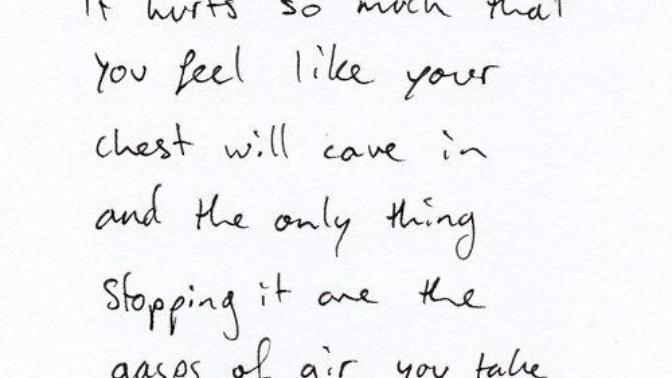 It hurts so much that
You feel like your
chest will cave in
and the only thing
Stopping it are the
gasps of air you take